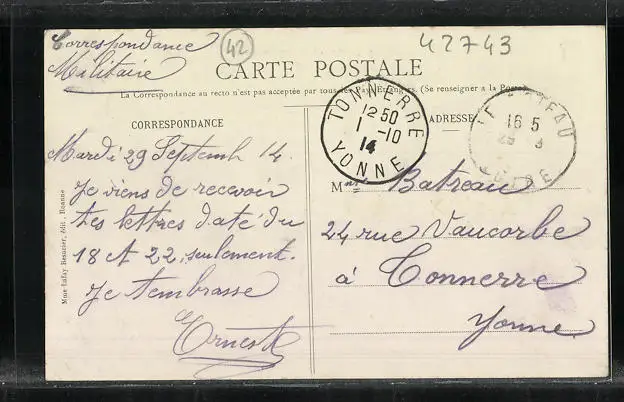 Correspondance
Militaire
42
42743
CARTE POSTALE
La Correspondance au recto n'est pas acceptée par tous les Pays Étrangers. (Se renseigner à la Poste)
CORRESPONDANCE
ADRESSE
TONNERRE
12 50
1 -10
14
YONNE
16 5
LOIRE
Mardi 29 Septemb 14.
Je viens de recevoir
tes lettres daté du
18 et 22 seulement.
Je t'embrasse
Ernest
Mme Batreau
24 rue Vaucorbe
à Tonnerre
Yonne
édit. Roanne